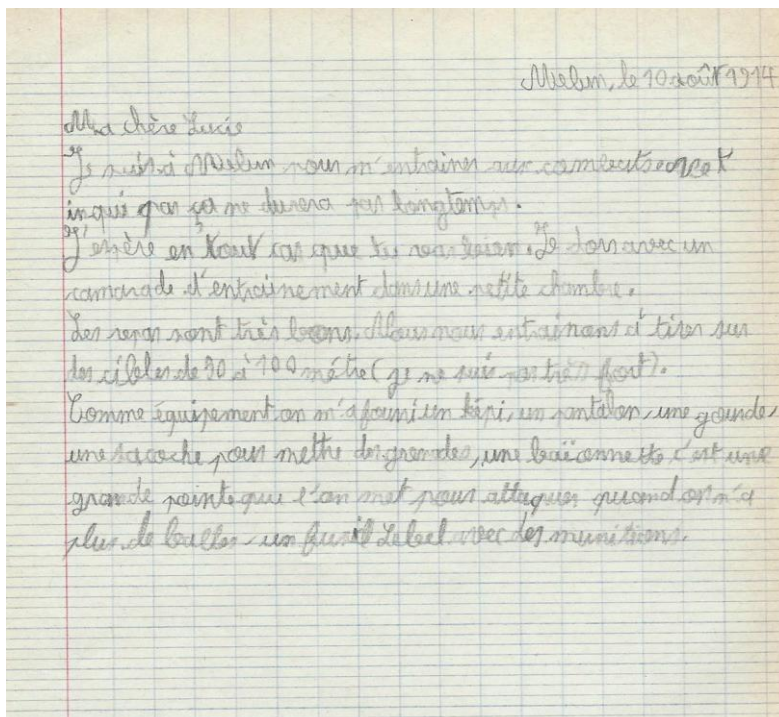 Melun, le 10 août 1914
Ma chère Lucie
Je suis à Melun pour m'entrainer aux combats
pas ça ne durera pas longtemps.
J'espère en tout cas que tu vas bien. Je dors avec un
camarade d'entrainement dans une petite chambre.
Les repas sont très bons. Nous nous entrainons à tirer sur
des cibles de 90 à 100 métre ( je ne suis pas très fort).
Comme équipement on m'a fourni un képi, un pantalon, une gourde,
une sacoche pour mettre des grenades, une baïonnette c'est une
grande pointe que l'on met pour attaquer quand on n'a
plus de balles un fusil Lebel avec des munitions.